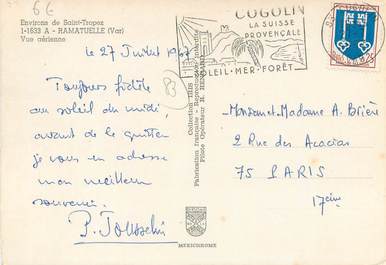 6€
Environs de Saint-Tropez
1-1633 A - RAMATUELLE (Var)
Vue aérienne
le 27 Juillet 1967
Toujours fidèle
au soleil du midi,
avant de le quitter
je vous en adresse
mon meilleur
souvenir.
P. Jousselin
83
Collection IRIS
Fabrication française - Reproduction
Pilote Opérateur R. HENRARD
MEXICHROME
COGOLIN
LA SUISSE
PROVENÇALE
SOLEIL-MER-FORÊT
Monsieur et Madame A. Brière
2 Rue des Acacias
75 PARIS
17ème